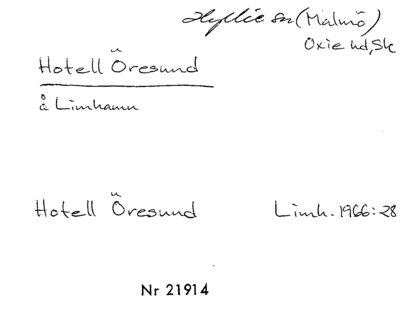 Hyllie sn (Malmö)
Oxie hd, Sk
Hotell Öresund
å Limhamn
Hotell Öresund Limh. 1966:28
Nr 21914